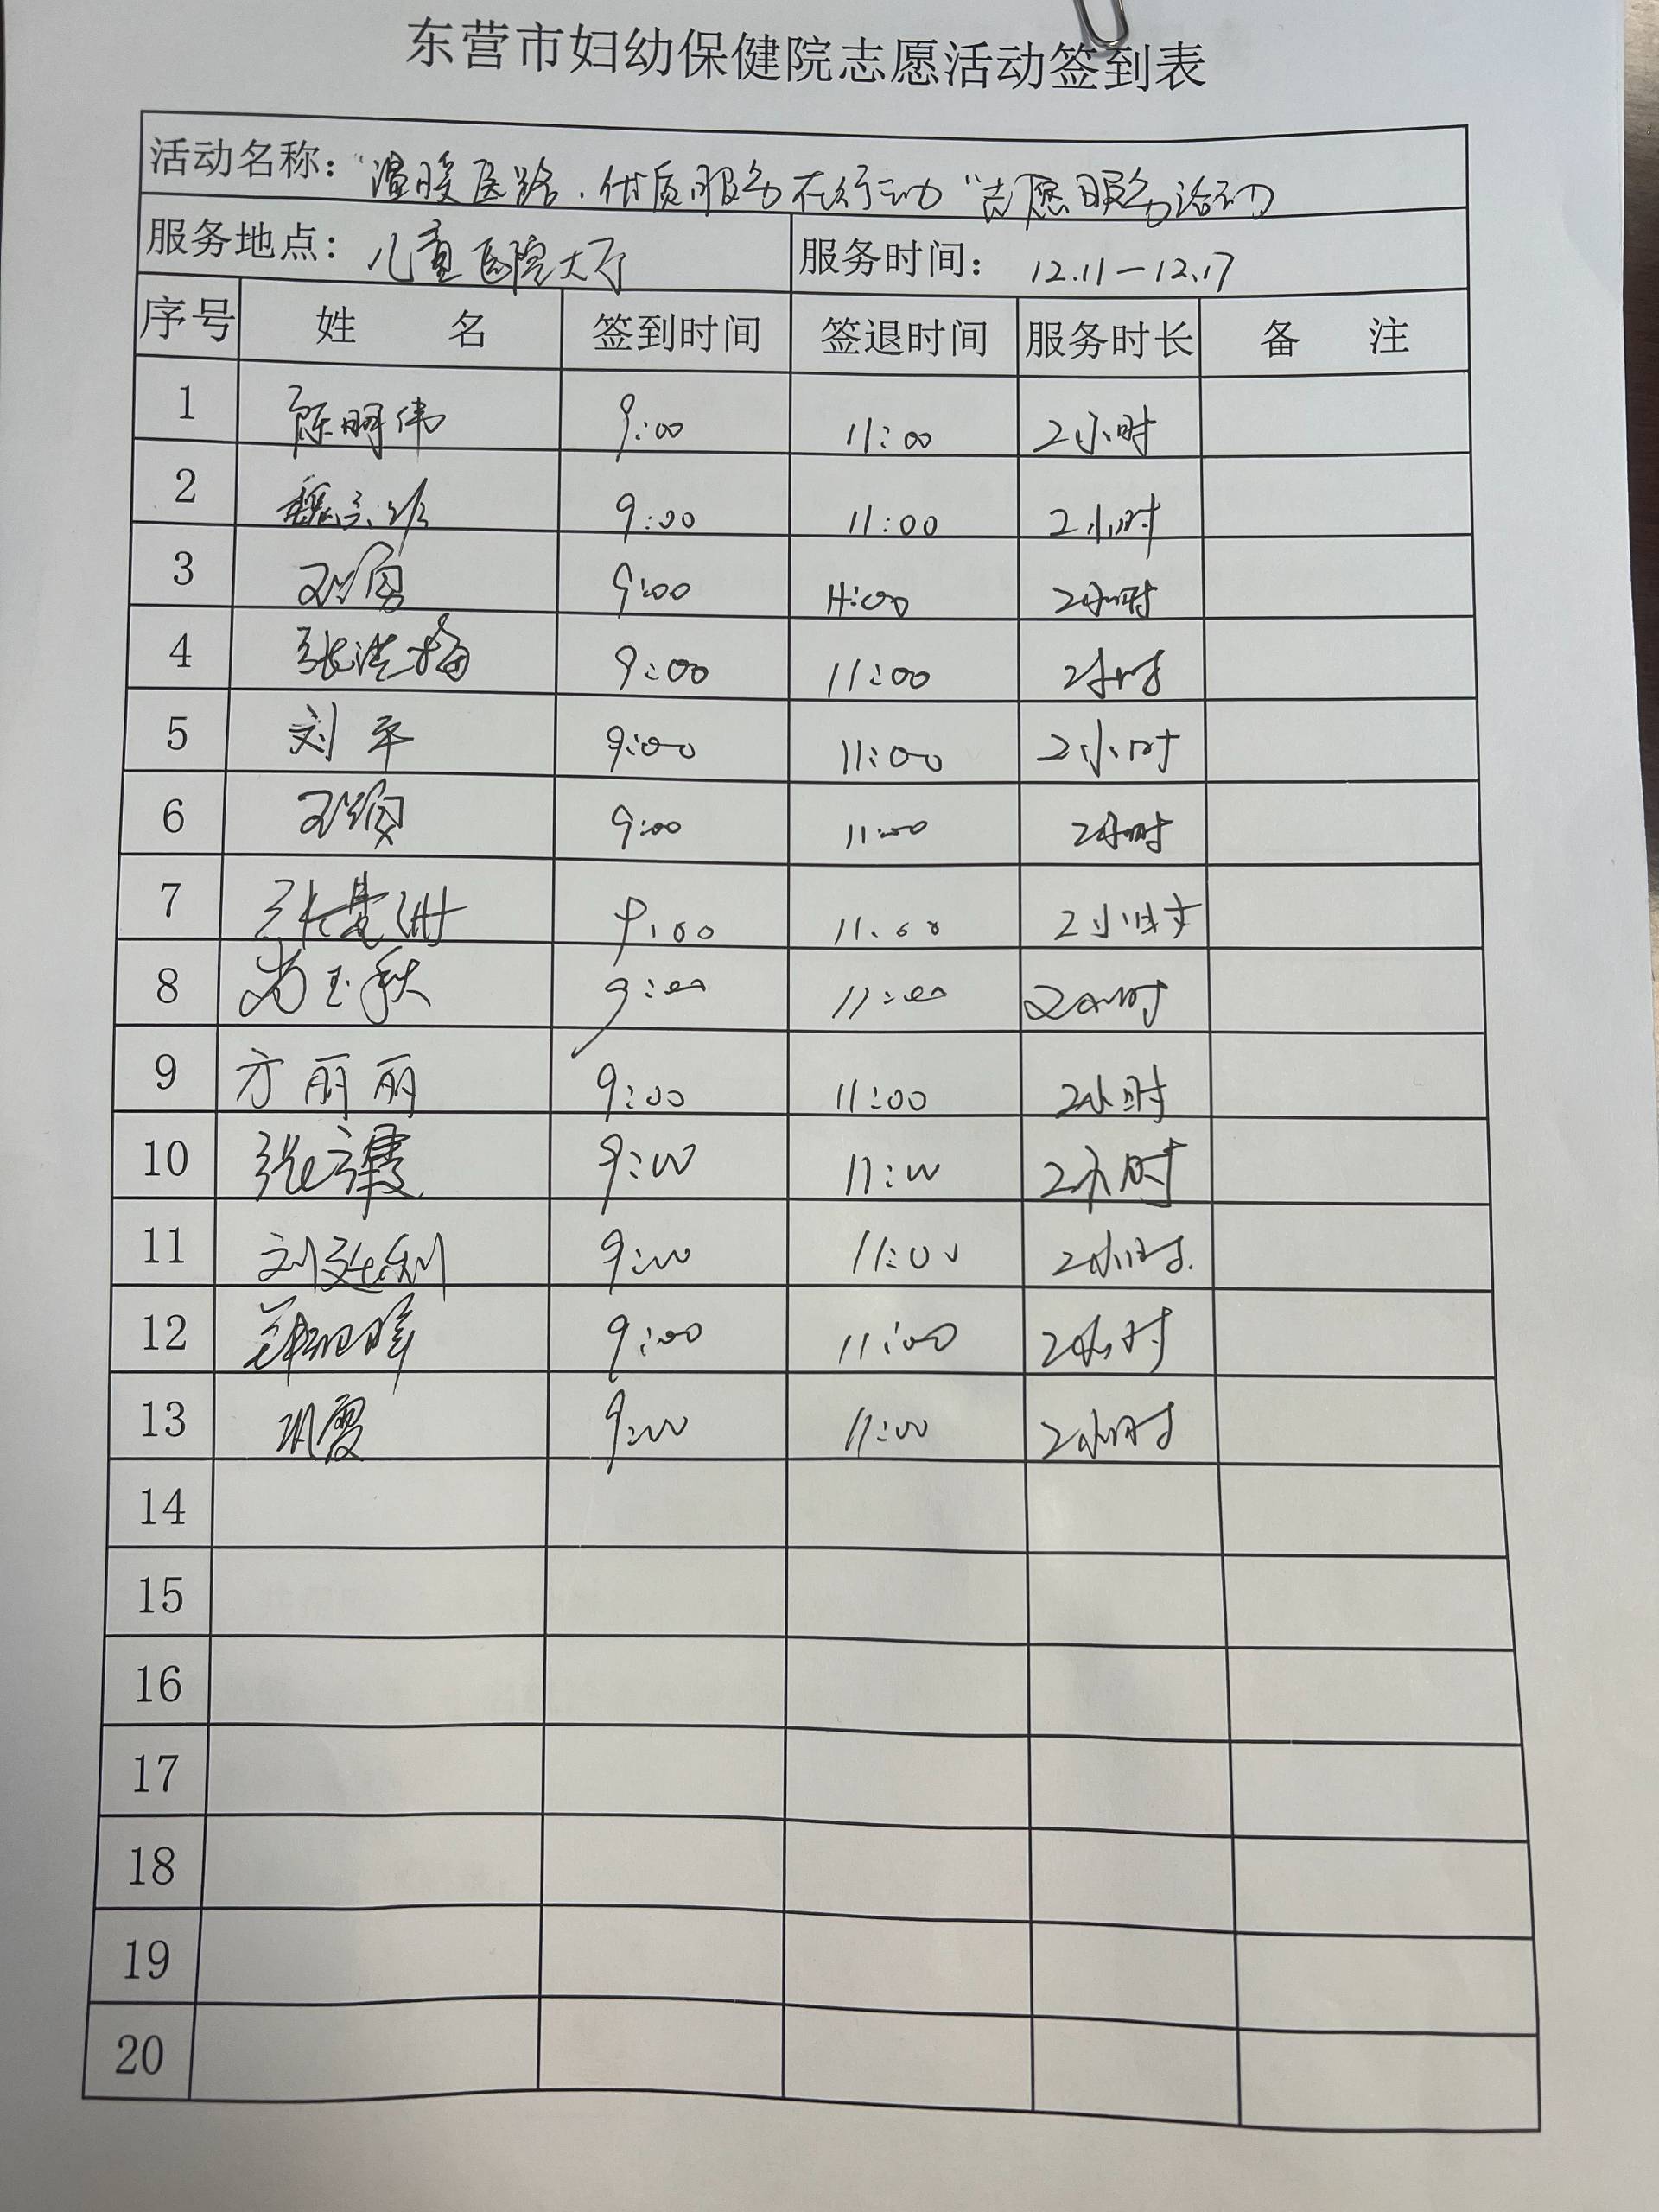 东营市妇幼保健院志愿活动签到表
活动名称：“温暖医路．优质服务在行动“志愿服务活动
服务地点：儿童医院大厅 服务时间：12.11—12.17
序号 姓 名 签到时间 签退时间 服务时长 备 注
1 陈明伟 9:00 11:00 2小时
2 9:00 11:00 2小时
3 9:00 11:00 2小时
4 张洪梅 9:00 11:00 2小时
5 刘平 9:00 11:00 2小时
6 9:00 11:00 2小时
7 9:00 11:00 2小时
8 尚玉秋 9:00 11:00 2小时
9 方丽丽 9:00 11:00 2小时
10 9:00 11:00 2小时
11 刘延利 9:00 11:00 2小时.
12 9:00 11:00 2小时
13 巩霞 9:00 11:00 2小时
14
15
16
17
18
19
20